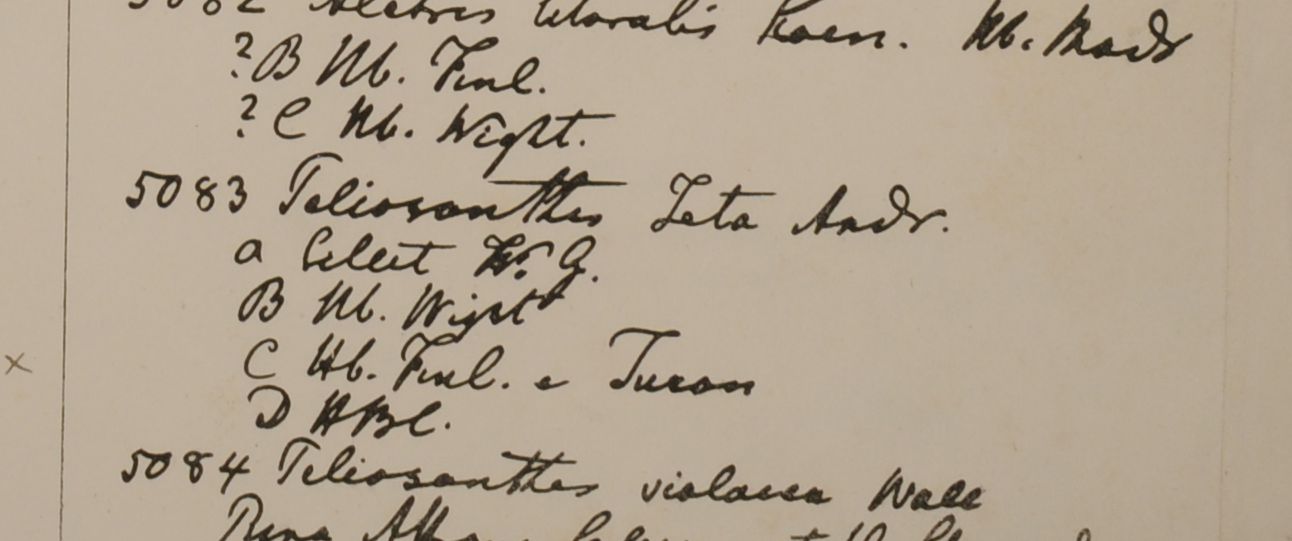 5082 Aletris litoralis Koen. Hb. Madr
?B Hb. Finl.
?C Hb. Wight.
5083 Peliosanthes Teta Andr.
a Silet W. G.
B Hb. Wight
C Hb. Finl. e Turon
D HBC.
5084 Peliosanthes violacea Wall